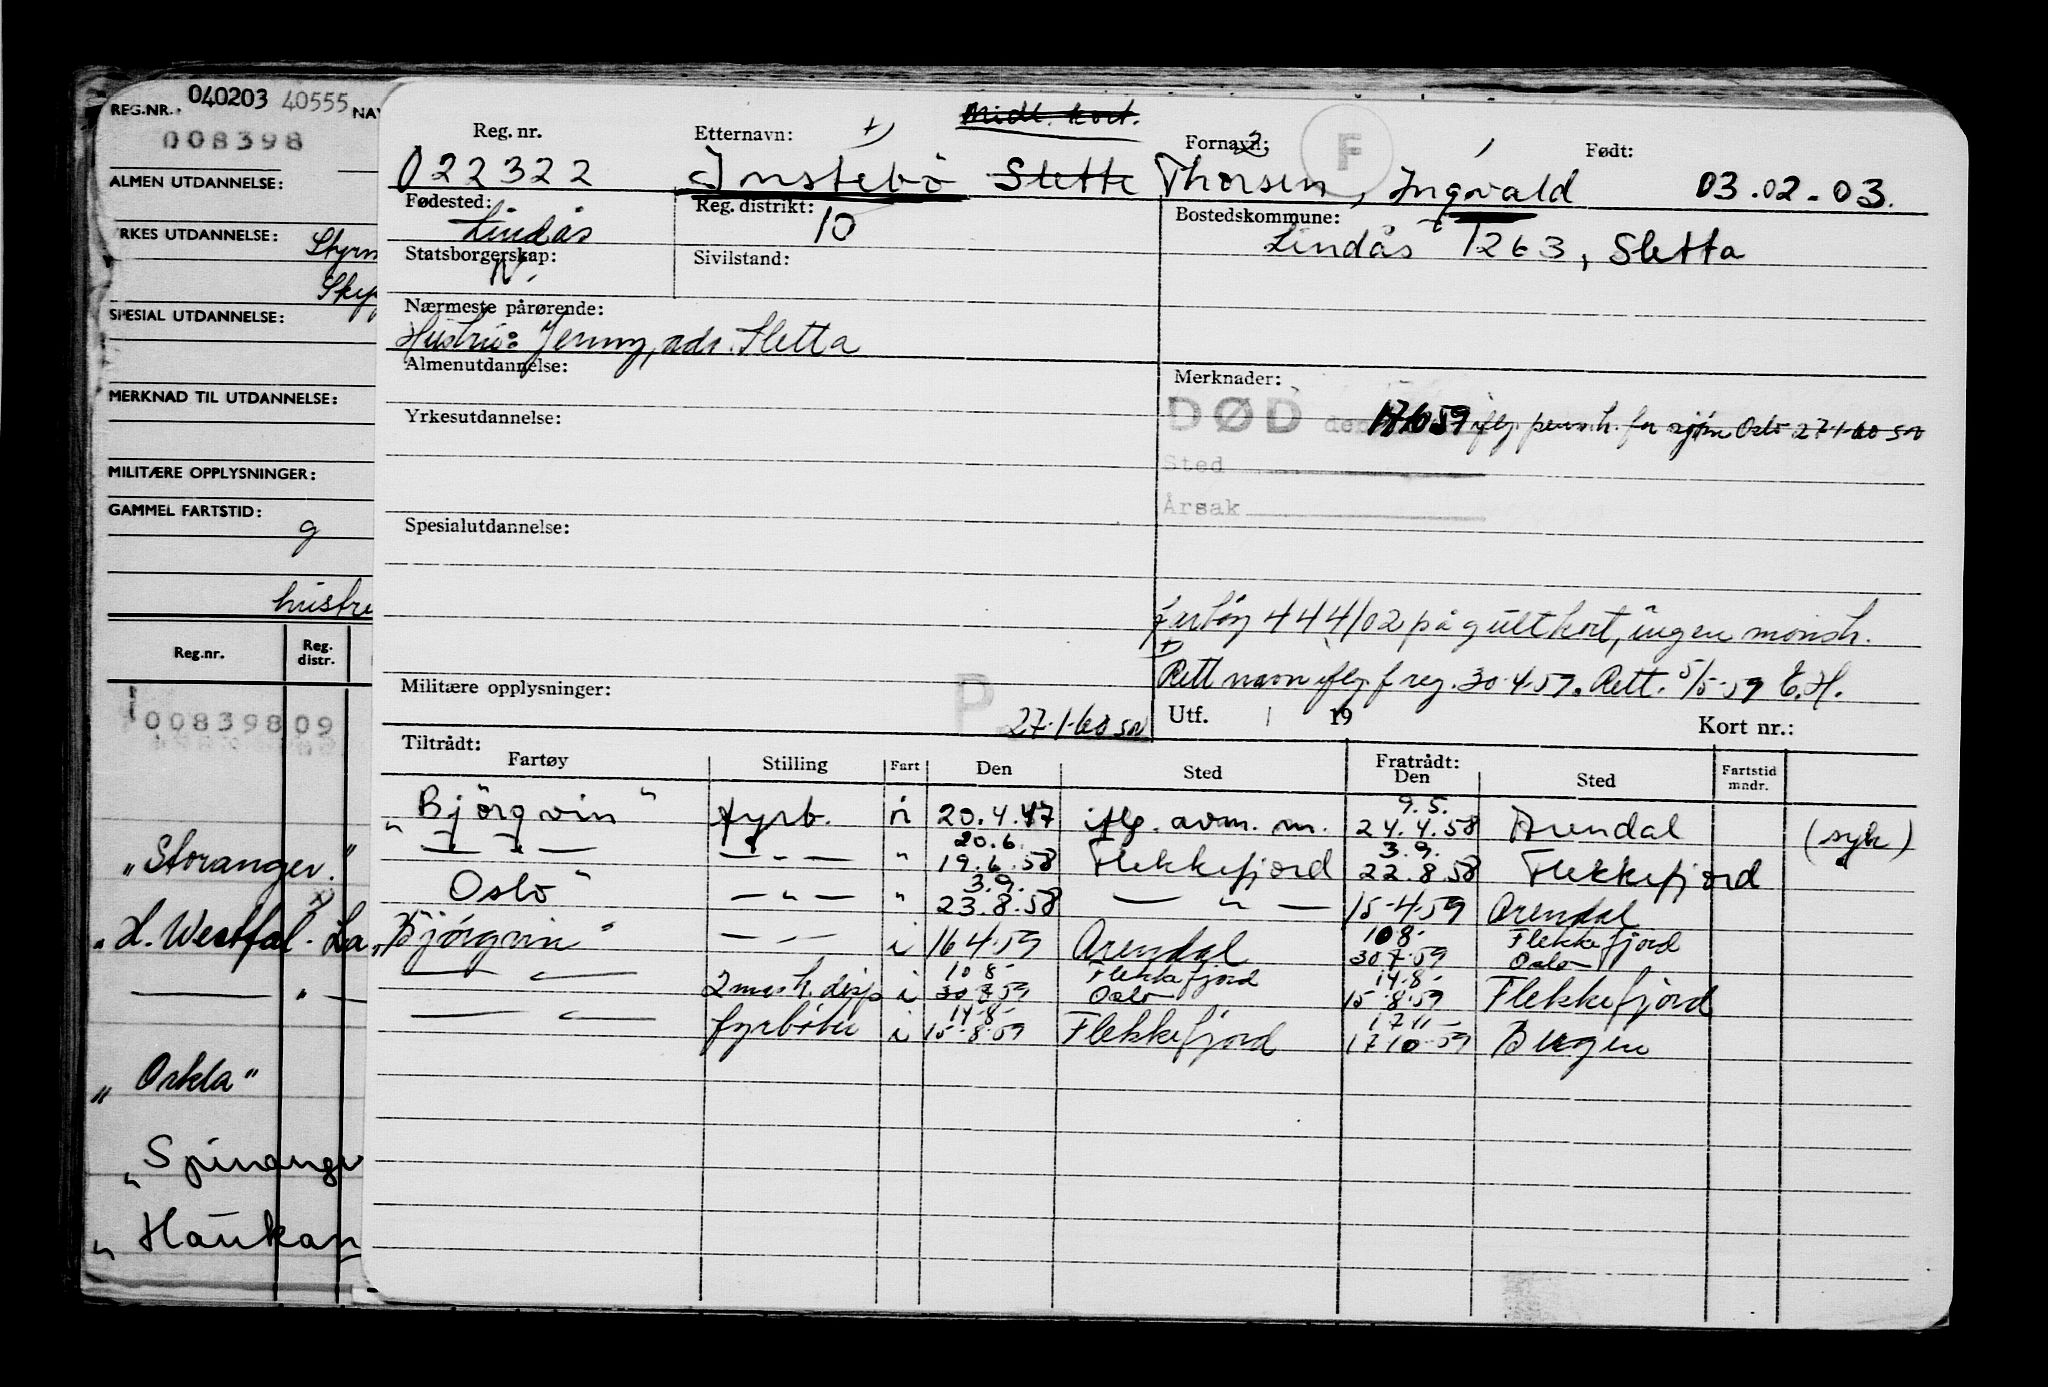 REG.NR. 040203 40555 NAV
008398
ALMEN UTDANNELSE:
YRKES UTDANNELSE: Styrm
Skip
SPESIAL UTDANNELSE:
MERKNAD TIL UTDANNELSE:
MILITÆRE OPPLYSNINGER:
GAMMEL FARTSTID:
g
hustru
Reg.nr. Reg. distr.
00839809
"Storanger"
"H. Westfal-La
— " —
"Orkla"
"Spinanger
"Haukan
Midl. kort.
Reg. nr. Etternavn: +) Fornavn: 2 F 1 Født:
022322 Instebö Slette Thorsen, Ingvald 03.02-03.
Fødested: Reg. distrikt: Bostedskommune:
Lindås 10 Lindås 1263, Sletta
Statsborgerskap: Sivilstand:
N.
Nærmeste pårørende:
Hustru: Jenny, adr. Sletta
Almenutdannelse: Merknader:
Yrkesutdannelse: DØD den 171059 iflg. pensh. for sjöm Oslo 27-1-60 sn
Sted
Årsak
Spesialutdannelse:
fartöy 444/02 på gult kort, ingen mönsh.
+) Rett navn iflg. f reg. 30-4-59. Rett. 5/5-59 E.H.
Militære opplysninger: P 27-1-60 sn Utf. 19 Kort nr.:
Tiltrådt: Fratrådt:
Fartøy Stilling Fart Den Sted Den Sted Fartstid mndr.
9.5.
"Björgvin" fyrb. i 20.4.47 iflg. avm. m. 24.4.58 Arendal (syk)
20.6. 3.9.
— " — — " — " 19.6.58 Flekkefjord 22.8.58 Flekkefjord
3.9.
"Oslo" — " — " 23.8.58 — " — 15-4-59 Arendal
10 8- Flekkefjord
"Björgvin" — " — i 16 4-59 Arendal 30 7-59 Oslo
10 8- Flekkefjord 14-8-
— " — 2 mask. disp i 30 7 59 Oslo 15-8-59 Flekkefjord
14-8- 17 11-
— " — fyrböter i 15-8-59 Flekkefjord 17 10-59 Bergen